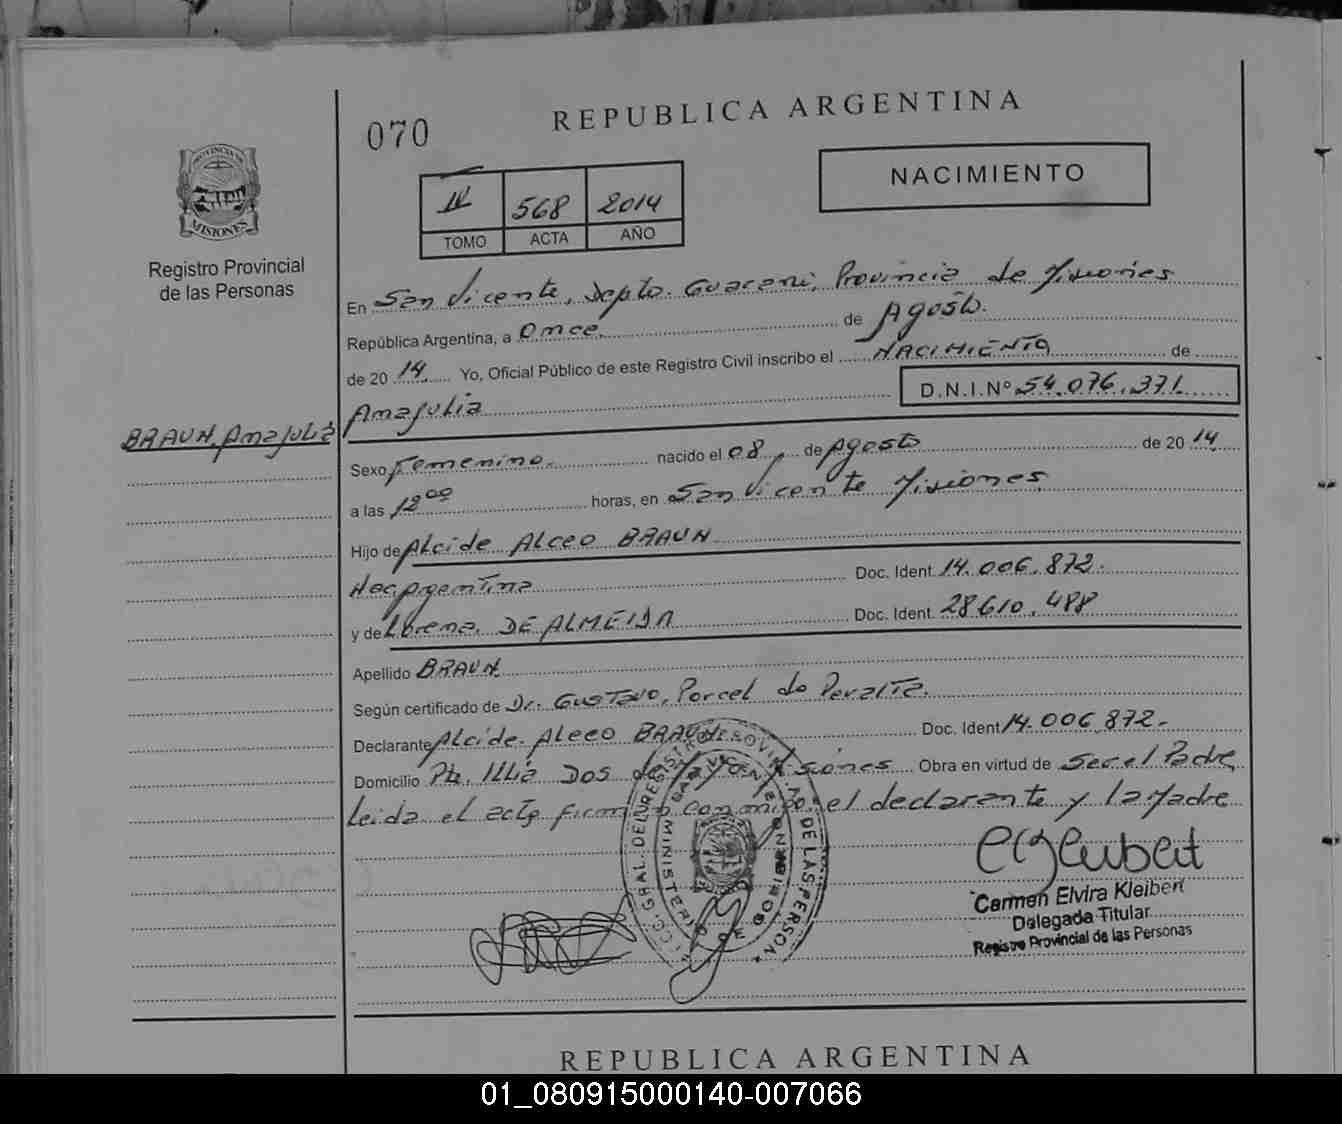 REPUBLICA ARGENTINA
070
PROVINCIA DE
MISIONES
Registro Provincial
de las Personas
IV 568 2014
TOMO ACTA AÑO
NACIMIENTO
En San Vicente, Depto. Guarani, Provincia de Misiones
República Argentina, a Once de Agosto.
de 2014 Yo, Oficial Público de este Registro Civil inscribo el NACIMIENTO de
Ana Julia D.N.I.Nº 54.076.371
BRAUN, Ana Julia
Sexo Femenino. nacido el 08 de Agosto de 2014
a las 12 00 horas, en San Vicente Misiones
Hijo de Alcide Alceo BRAUN
Nac. Argentina Doc. Ident. 14.006.872.
y de Lorena DE ALMEIDA Doc. Ident. 28610.488
Apellido BRAUN
Según certificado de Dr. Gustavo, Porcel de Peralta.
Declarante Alcide Alceo BRAUN Doc. Ident. 14.006.872.
Domicilio Pte. Illia Dos de Mayo Misiones Obra en virtud de Ser el Padre
Leida el acta firman conmigo el declarante y la Madre
DIRECC. GRAL. DEL REGISTRO PROVINCIAL DE LAS PERSONAS
MINISTERIO DE GOBIERNO
Carmen Elvira Kleibert
Delegada Titular
Registro Provincial de las Personas
REPUBLICA ARGENTINA
01_080915000140-007066